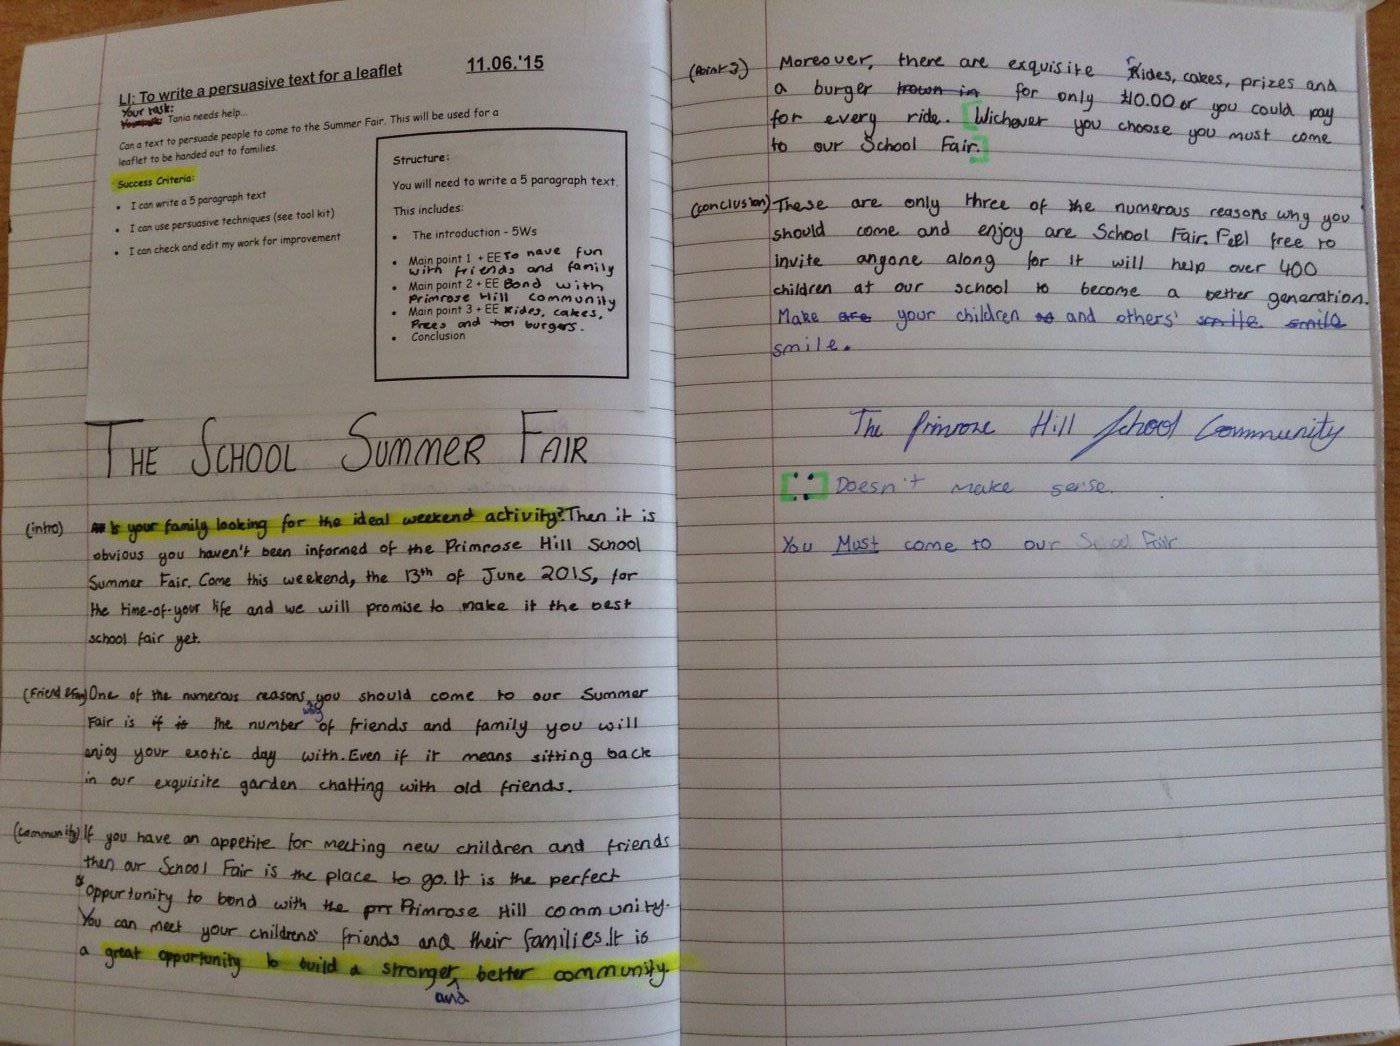 LI: To write a persuasive text for a leaflet 11.06.'15
Your task:
Tania needs help...
Can a text to persuade people to come to the Summer Fair. This will be used for a
leaflet to be handed out to families.
Success Criteria:
• I can write a 5 paragraph text
• I can use persuasive techniques (see tool kit)
• I can check and edit my work for improvement
Structure:
You will need to write a 5 paragraph text.
This includes:
• The introduction - 5Ws
• Main point 1 + EE To have fun
with friends and family
• Main point 2 + EE Bond with
Primrose Hill community
• Main point 3 + EE Rides, cakes,
Prezes and hot burgers.
• Conclusion
THE SCHOOL SUMMER FAIR
(intro) Is your family looking for the ideal weekend activity? Then it is
obvious you haven't been informed of the Primrose Hill School
Summer Fair. Come this weekend, the 13th of June 2015, for
the time-of-your life and we will promise to make it the best
school fair yet.
(Friend & Fam) One of the numerous reasons why you should come to our Summer
Fair is if is the number of friends and family you will
enjoy your exotic day with. Even if it means sitting back
in our exquisite garden chatting with old friends.
(Community) If you have an appetite for meeting new children and friends
then our School Fair is the place to go. It is the perfect
oppurtunity to bond with the prr Primrose Hill community.
You can meet your childrens' friends and their families. It is
a great oppurtunity to build a stronger and better community.
(Point 3) Moreover, there are exquisite Rides, cakes, prizes and
a burger trown in for only £10.00 or you could pay
for every ride. [Wichever you choose you must come
to our School Fair.]
(conclusion) These are only three of the numerous reasons why you
should come and enjoy are School Fair. Feel free to
invite anyone along for it will help over 400
children at our school to become a better generation.
Make are your children and others' smile smile
smile.
The Primrose Hill School Community
[::] Doesn't make sense.
You Must come to our School Fair